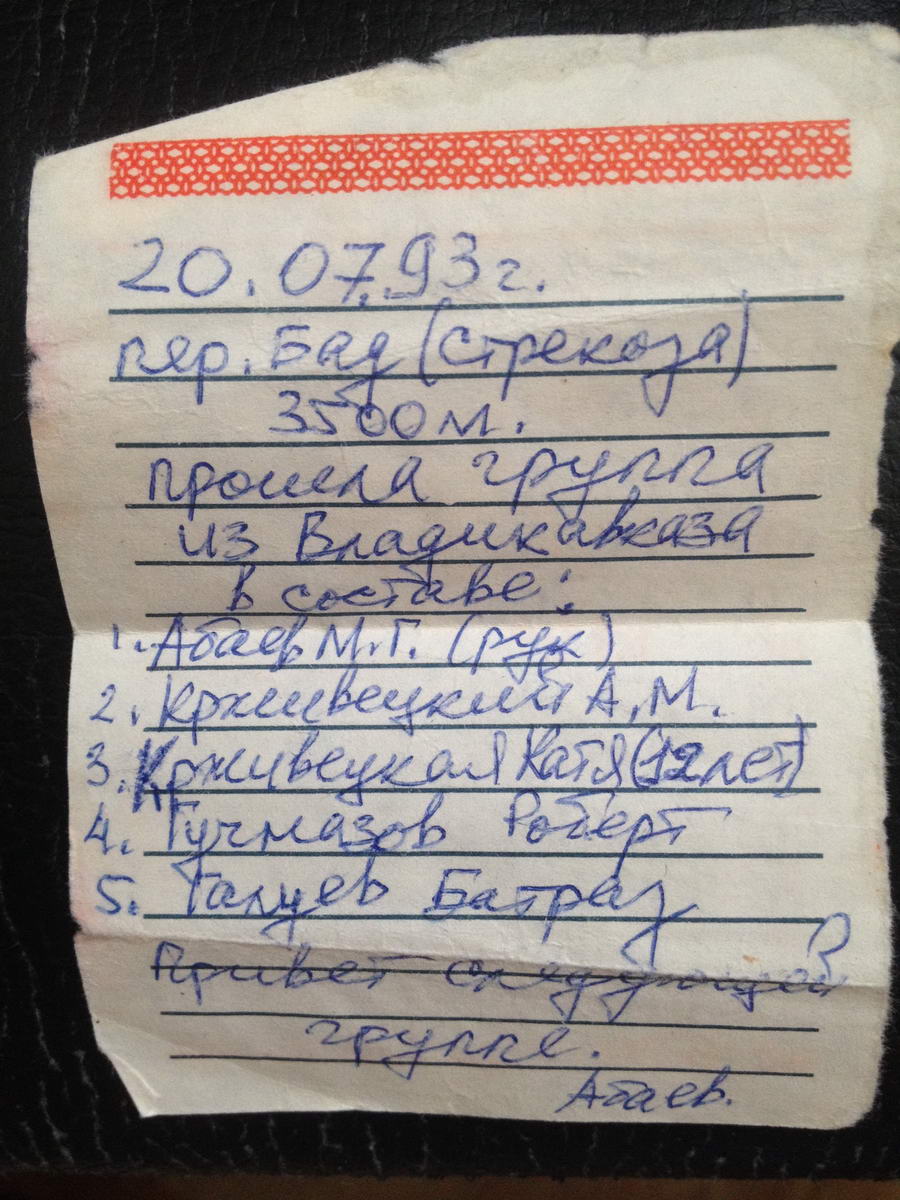 20.07.93г.
пер. Бад (Стрекоза)
3500 м.
прошла группа
из Владикавказа
в составе:
1. Абаев М.Г. (рук)
2. Крживецкий А.М.
3. Крживецкая Катя (12 лет)
4. Гучмазов Роберт
5. Галуев Батраз
Привет следующей
группе.
Абаев.